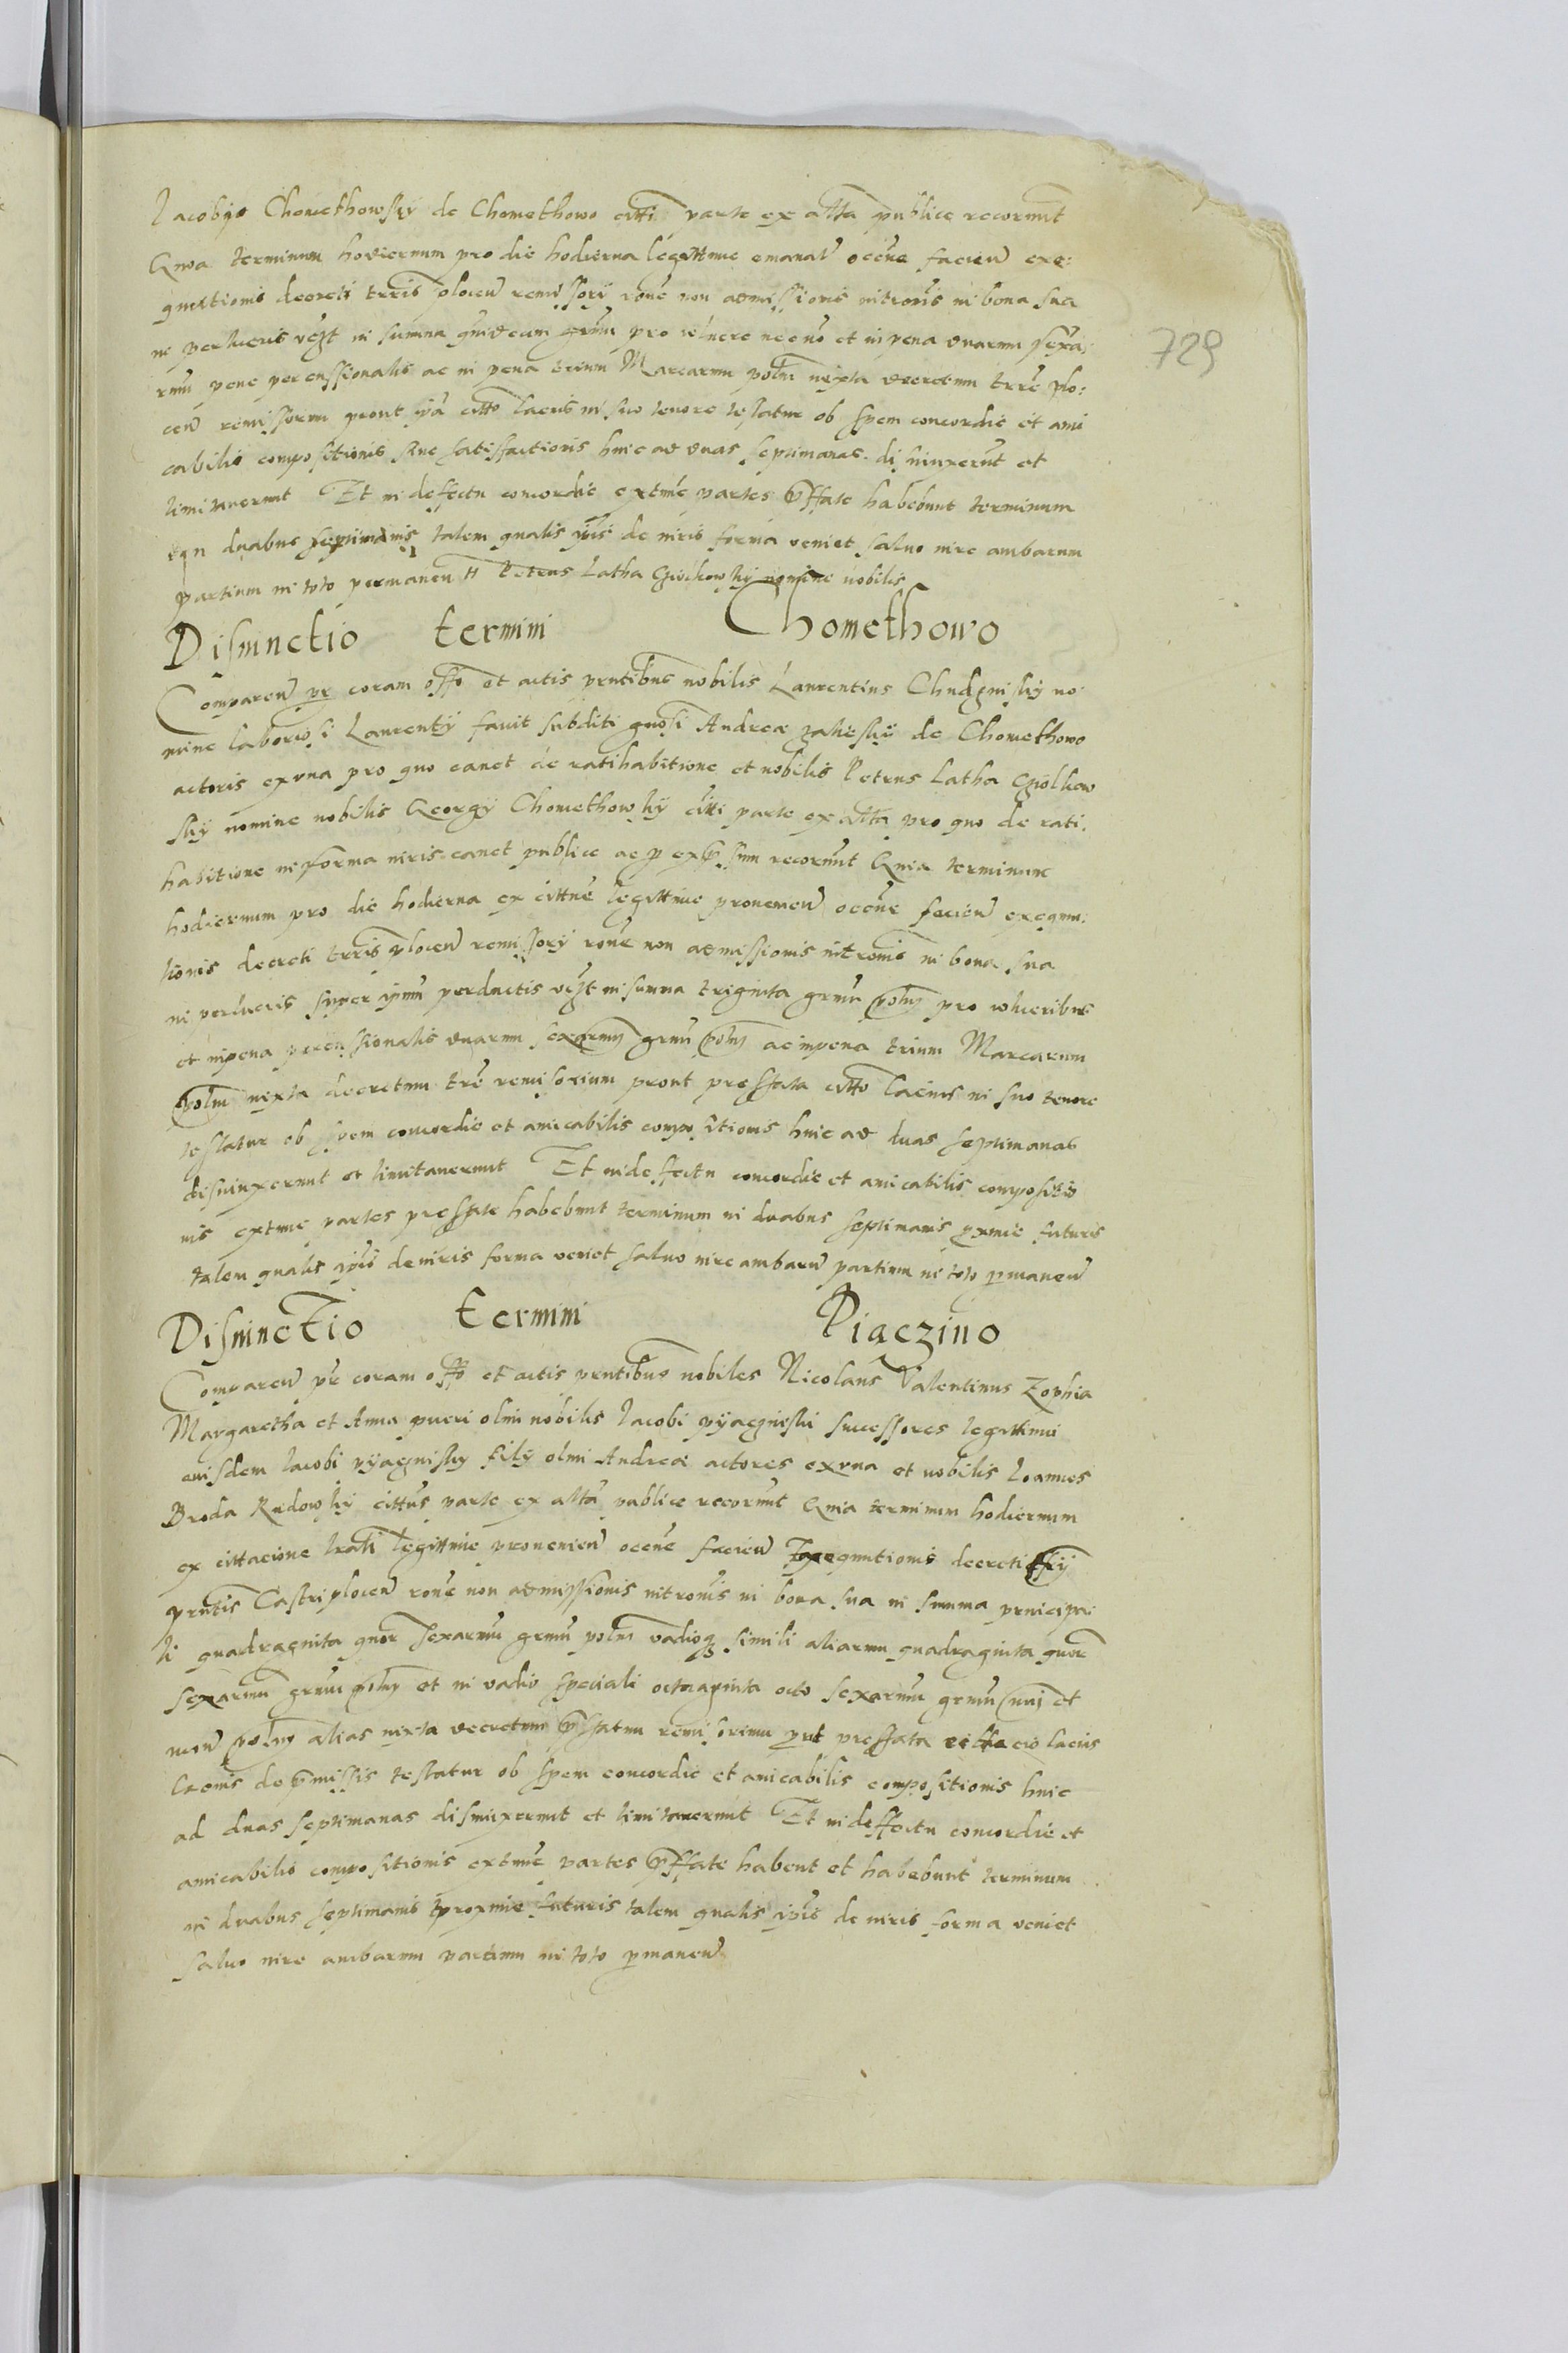 Jacobus Chomethowskÿ de Chomethowo citti parte ex altta publice recorunt
Quia terminum hodiernum pro die hodierna legittime emanat occne facien exe:
quutionis decreti terris plocen remissorÿ rone non admissionis intromis in bona sua
in perlucris vczt in summa quindecim grmi pro vulnere necno et in pena duarum sexa:
rmi pene percussionalis ac in pena trium Marcarum polm iuxta decretum terre plo:
cen remissorum prout ipa citto lacius in suo tenore testatur ob spem concordie et ami
cabilis compositionis sive satisfactionis hinc ad duas septimanas disiunxerunt et
limitaverunt Et in defectu concordie extunc partes pffate habebunt terminum
in duabus septimanis talem qualis ipis de iuris forma veniet salvo iure ambarum
partium in toto permanen Petrus Latha nomine nobilis
Disiunctio termini Chomethowo
Comparen pr coram offo et actis pntibus nobilis Laurentius no
mine laboriosi Laurentÿ subditi gnosi Andree zaliesskÿ de Chomethowo
actoris exuna pro quo cavet de ratihabitione et nobilis Petrus Latha
skÿ nomine nobilis Georgÿ Chomethowskÿ citti parte ex altta pro quo de rati
habitione in forma iuris cavet publice ac p expssum recorunt Quia terminum
hodiernum pro die hodierna ex cittne legittime provenien occne facien exequu:
tionis decreti terris plocen remissorÿ rone non admissionis intromis in bona sua
in perlucris super ipum perductis vczt in summa triginta grmi polm pro vulneribus
et in pena percussionalis duarum sexarmi grmi polm ac in pena trium Marcarum
polm iuxta decretum tre remisorium prout preffata citto lacius in suo tenore
testatur ob spem concordie et amicabilis compositionis hinc ad duas septimanas
disiunxerunt et limitaverunt Et in defectu concordie et amicabilis compositio
nis extunc partes preffate habebunt terminum in duabus septimanis pxmie futuris
talem qualis ipis de iuris forma veniet salvo iure ambaru partium in toto pmanen
Disiunctio termini Piaczino
Comparen pr coram offo et actis pntibus nobiles Nicolaus Valentinus Zophia
Margaretha et Anna pueri olim nobilis Jacobi successores legittimi
eiusdem Jacobi filÿ olim Andree actores exuna et nobilis Joannes
Broda Rudowskÿ cittus parte ex altta publice recorunt Quia terminum hodiernum
ex cittacione lrali legittime provenien occne facien exequutionis decreti
pntis Castri plocen rone non admissionis intromis in bona sua in summa principa
li quadraginta quor sexarmi grmi polm vadioq simili aliarum quadraginta quor
sexarmi grmi polm et in vadio speciali octuaginta octo sexarmi grmi mij et
mon polm alias iuxta decretum pffatum remisorium put preffata cittacio lacius
de pmissis testatur ob spem concordie et amicabilis compositionis hinc
ad duas septimanas disiunxerunt et limitaverunt Et in deffectu concordie et
amicabilis compositionis extunc partes pffate habent et habebunt terminum
in duabus septimanis proxmie futuris talem qualis ipis de iuris forma veniet
salvo iure ambarum partium in toto pmanen
729